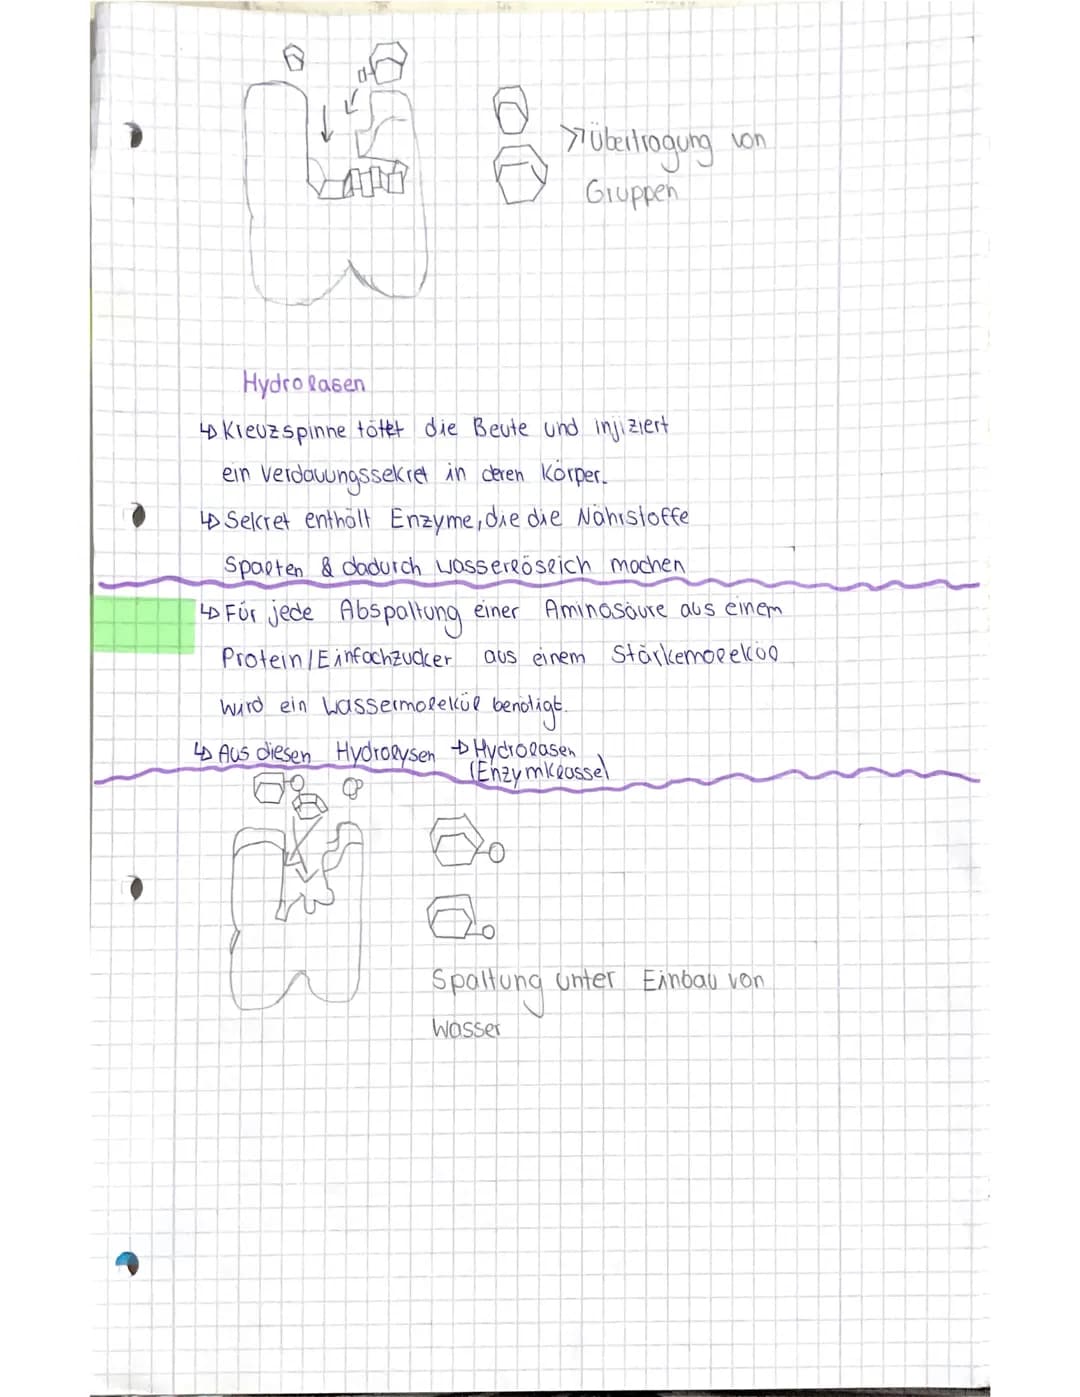 Übertragung von
Gruppen
Hydrolasen
↳ Kreuzspinne tötet die Beute und injiziert
ein Verdauungssekret in deren Körper.
↳ Sekret enthält Enzyme, die die Nährstoffe
Spalten & dadurch wasserlöslich machen
↳ Für jede Abspaltung einer Aminosäure aus einem
Protein/Einfachzucker aus einem Stärkemolekül
wird ein Wassermolekül benötigt.
↳ Aus diesen Hydrolysen → Hydrolasen
(Enzymklasse)
Spaltung unter Einbau von
Wasser